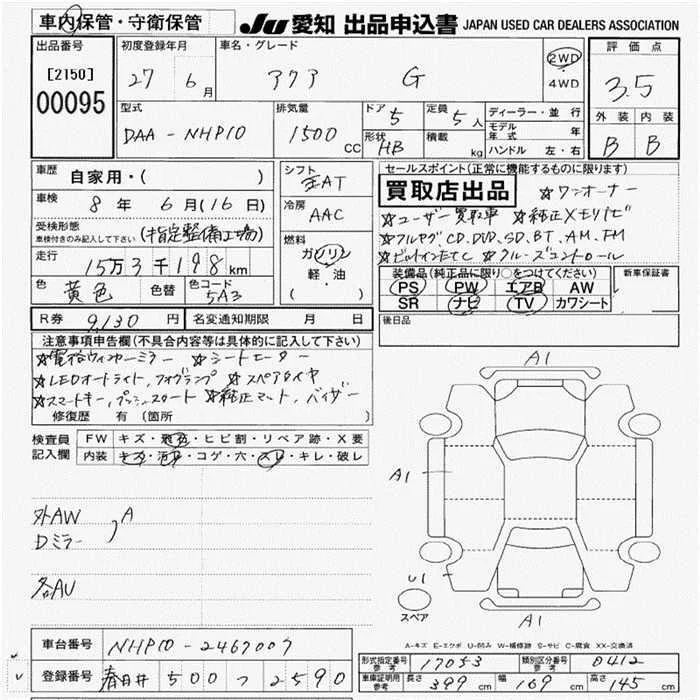 車内保管・守衛保管
JU 愛知 出品申込書 JAPAN USED CAR DEALERS ASSOCIATION
出品番号
[2150]
00095
初度登録年月
27 6月
車名・グレード
アクア G
2WD
4WD
評価点
3.5
外装 内装
B B
型式
DAA-NHP10
排気量
1500 CC
ドア 5
定員 5人
形状 HB
積載 kg
ディーラー・並行
モデル年式 年
ハンドル 左・右
車歴
自家用・( )
車検
8年 6月(16日)
受検形態
車検付きのみ記入して下さい (指定整備工場)
走行
15万3千198km
色 黄色
色替
色コード 5A3
シフト
AT
冷房
AAC
燃料
ガソリン
軽・油
( )
セールスポイント(正常に機能するものに限ります)
買取店出品 ☆ワンオーナー
☆ユーザー買取車 ☆純正メモリナビ
☆フルセグ、CD、DVD、SD、BT、AM、FM
☆ビルトインETC ☆クルーズコントロール
装備品(純正品に限り○をつけてください)
PS PW エアB AW
SR ナビ TV カワシート
新車保証書
R券 9,130円
名変通知期限 月 日
後日品
注意事項申告欄(不具合内容等は具体的に記入して下さい)
☆電格ウィンカーミラー ☆シートヒーター
☆LEDオートライト、フォグランプ ☆スペアタイヤ
☆スマートキー、プッシュスタート ☆純正マット、バイザー
修復歴 有(箇所
検査員記入欄
FW キズ・飛石・ヒビ割・リペア跡・X要
内装 キズ・汚れ・コゲ・穴・スレ・キレ・破レ
外AW
Dミラー
A
各AU
A1
A1
U1
A1
スペア
A-キズ E-エクボ U-凹み W-補修跡 S-サビ C-腐食 XX-交換済
車台番号 NHP10-2467007
登録番号 春日井 500 つ 2590
形式指定番号 参考 17053
類別区分番号 参考 0412
車庫証明用 参考 長さ 399cm 幅 169cm 高さ 145cm